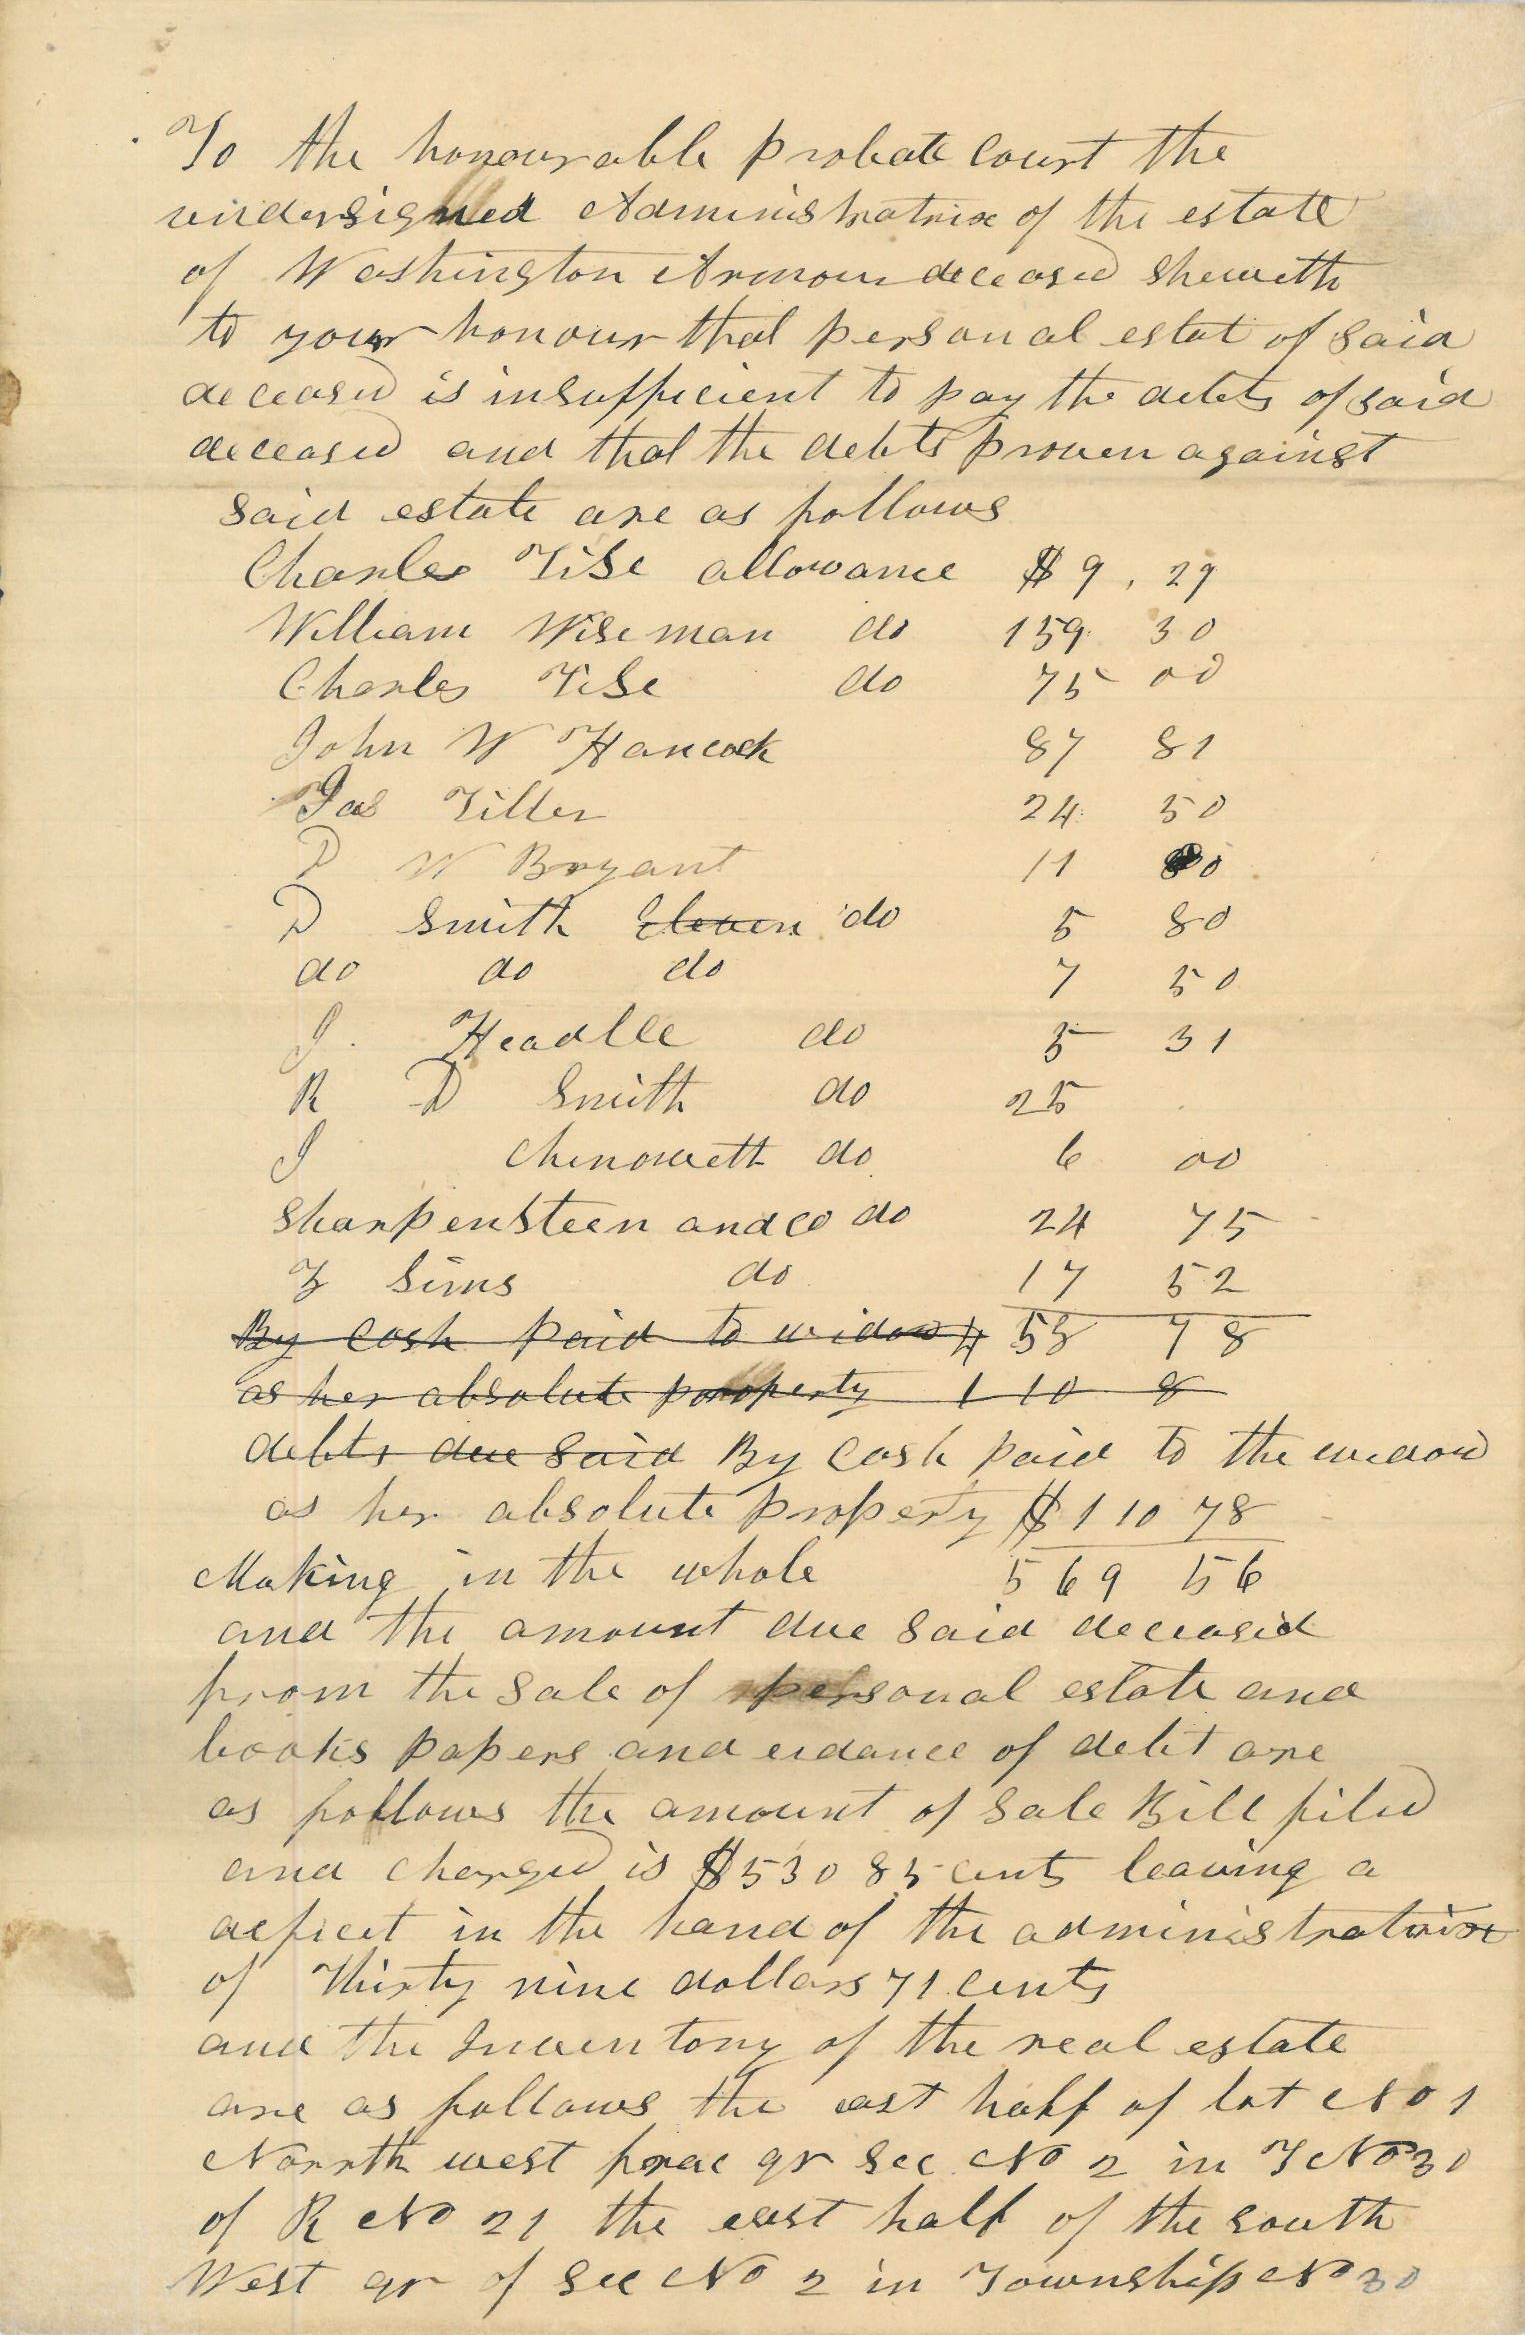 To the honourable probate court the
undersigned Administratrix of the estate
of Washington Armour deceased sheweth
to your honour that personal estat of said
deceased is insufficient to pay the debts of said
deceased and that the debts proven against
said estate are as follows
Charles Tise allowance $ 9, 29
William Wiseman do 159 30
Charles Tise do 75 00
John W Hancock 87 81
Jas Tiller 24 50
D W Bryant 11 00
D Smith Eleven do 5 80
do do do 7 50
J. Headlee do 5 31
R D Smith do 25
J Chenowett do 6 00
Sharpensteen and co do 24 75
Z Sims do 17 52
By cash paid to widow 4 58 78
as her absolute property 1 10 8
debts due said By Cash paid to the widow
as her absolute property $ 1 10 78
Making in the whole 5 69 56
and the amount due said deceased
from the sale of personal estate and
books papers and eidance of debt are
as follows the amount of sale Bill filed
and charged is $530 85 cents leaving a
deficet in the hand of the administratrix
of Thirty nine dollars 71 cents
and the Inventory of the real estate
are as follows the east half of lot No 1
Norrth west frac qr Sec No 2 in T No 30
of R No 21 the east half of the south
West qr of Sec No 2 in Township No 30